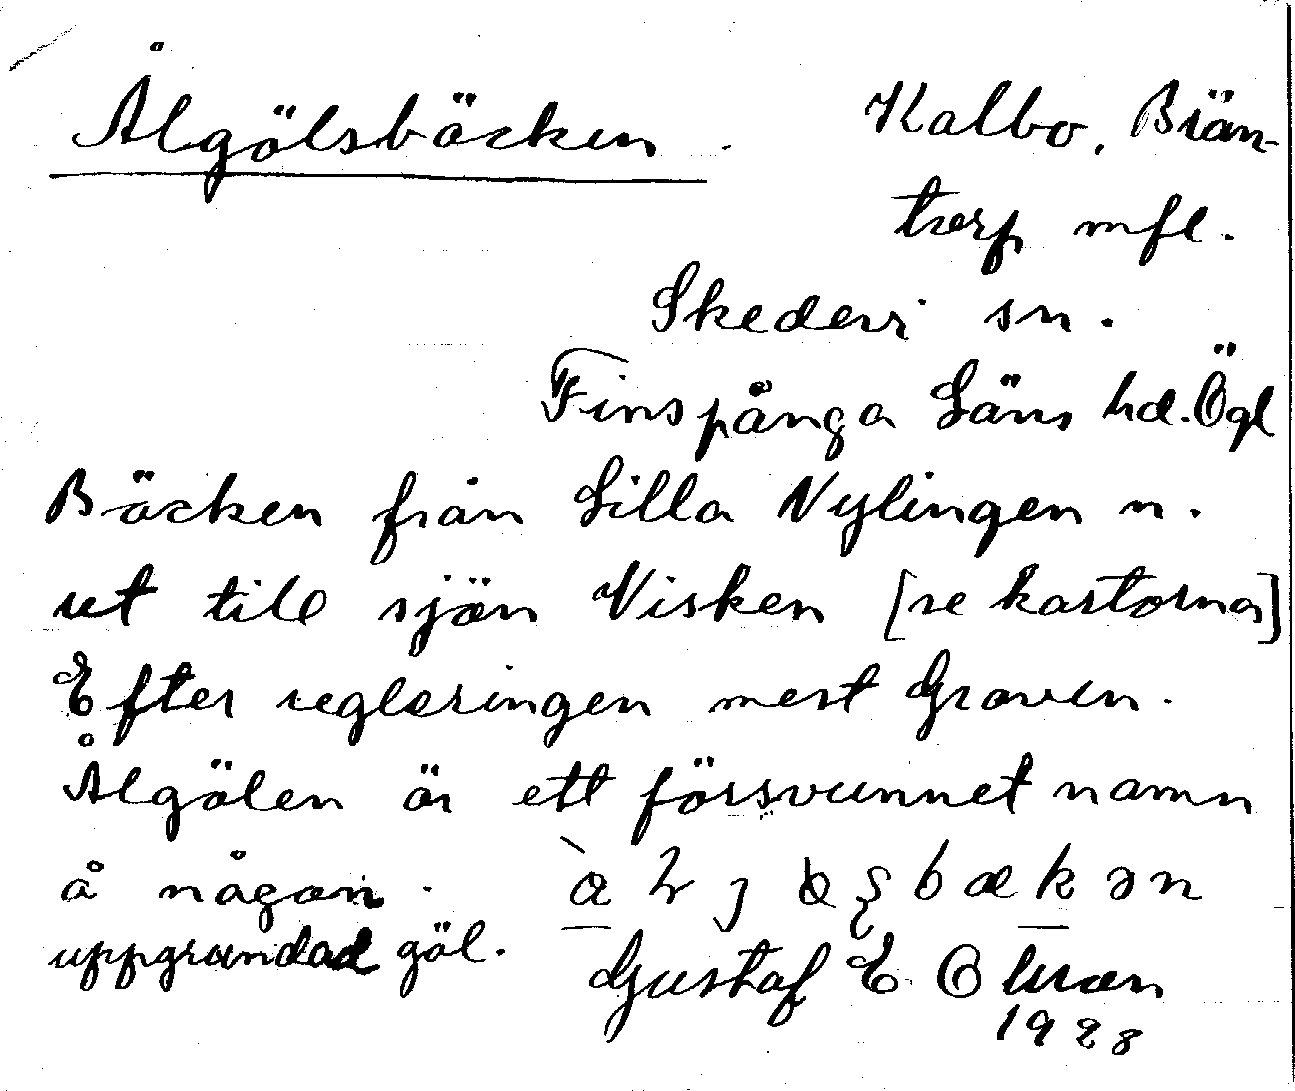 Ålgölsbäcken. Kalbo, Brän-
torp mfl.
Skedevi sn.
Finspånga Läns hd. Ögl
Bäcken från Lilla Nylingen n.
ut till sjön Visken [se kartorna]
Efter regleringen mest Graven.
Ålgölen är ett försvunnet namn
å någon
uppgrundad göl.
Gustaf E
1928